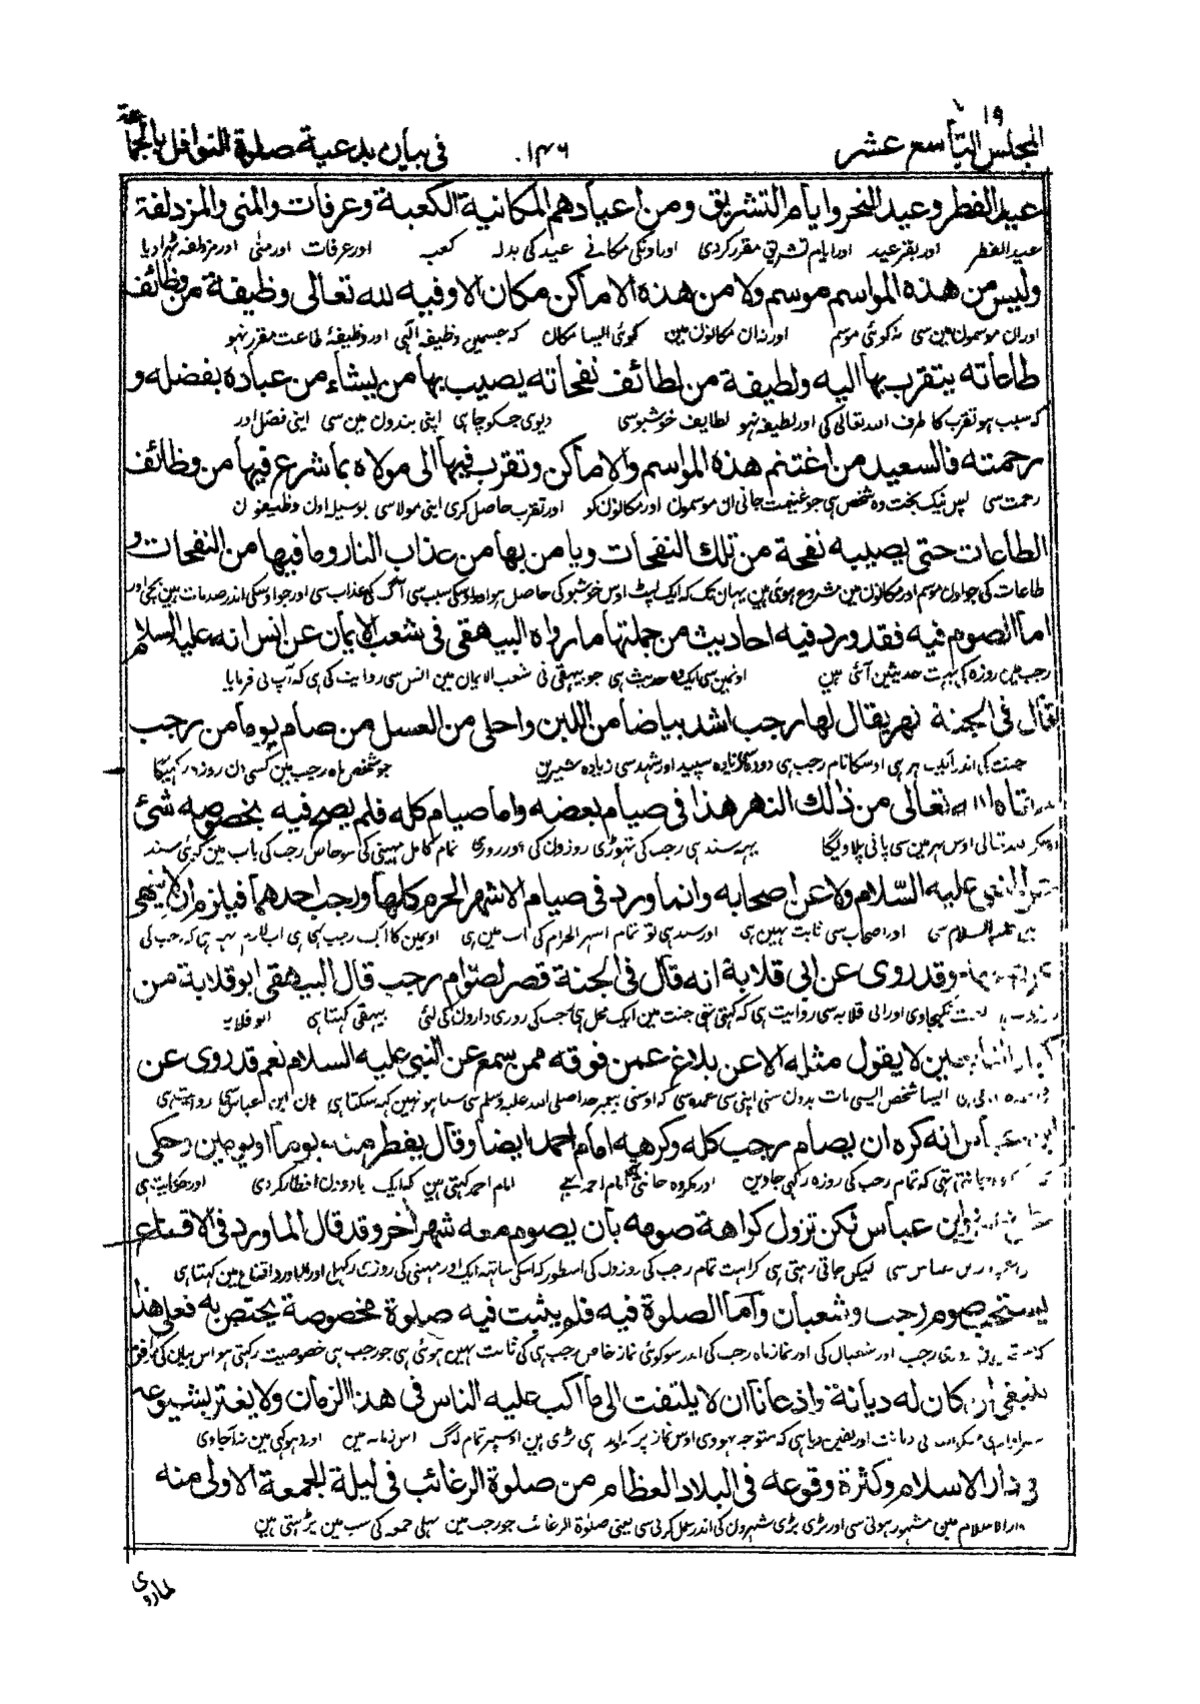 ١٩
المجلس التاسع عشر ١٤٦ في بيان بدعية صلوة النوافل بالجماعة
عيد الفطر وعيد النحر وايام التشريق ومن اعيادهم المكانية الكعبة وعرفات والمنى والمزدلفة
عيد الفطر اور بقر عيد اور ايام تشريق مقرر كردى اور اونكى مكانے عيد كى بدلہ كعبہ اور عرفات اور منٰى اور مزدلفہ ٹہرا ديا
وليس من هذه المواسم موسم ولا من هذه الاماكن مكان الا وفيه لله تعالى وظيفة من وظائف
اور ان موسمون مين سى نہ كوئى موسم اور نہ ان مكانون مين كوئى ايسا مكان كہ جسمين وظيفہ الٓہى اور وظيفۂ طاعت مقرر نہو
طاعاته يتقرب بها اليه ولطيفة من لطائف نفحاته يصيب بها من يشاء من عباده بفضله و
كہ سبب ہو تقرب كا طرف اللہ تعالى كى اور لطيفہ نہو لطايف خوشبو سى ديوى جسكو چاہى اپنى بندون مين سى اپنى فضل اور
رحمته فالسعيد من اغتنم هذه المواسم والاماكن وتقرب فيها الى مولاه بما شرع فيها من وظائف
رحمت سى پس نيك بخت وہ شخص ہى جو غنيمت جانى ان موسمون اور مكانون كو اور تقرب حاصل كرى اپنى مولا سى بوسيلہ اون وظيفون
الطاعات حتى يصيبه نفحة من تلك النفحات ويامن بها من عذاب النار وما فيها من النفحات و
طاعات كى جو اون موسم اور مكانون مين مشروع ہوئى ہين يہان تك كہ ايك لپٹ اوس خوشبو كى حاصل ہو اور اوسكى سبب سى آگ كى عذاب سى اور جو اوسكى اندر صدمات ہين بچى اور
اما الصوم فيه فقد ورد فيه احاديث من جملتها ما رواه البيهقى فى شعب الايمان عن انس انه عليه السلام
رجب مين روزہ كى بہت حديثين آئى ہين اونمين سى ايك وہ حديث ہى جو بيہقى نى شعب الايمان مين انس سى روايت كى ہى كہ آپ نى فرمايا
قال فى الجنة نهر يقال لها رجب اشد بياضا من اللبن واحلى من العسل من صام يوما من رجب
جنت كى اندر ايك نہر ہى اوسكا نام رجب ہى دودہ سى زيادہ سپيد اور شہد سى زيادہ شيرين جو شخص ماہ رجب مين كسى دن روزہ ركہيگا
سقاه الله تعالى من ذلك النهر هذا فى صيام بعضه واما صيام كله فلم يصح فيه بخصوصه شئ
اللہ تعالى اوس نہر مين سى پانى پلاويگا يہہ سند ہى رجب كى تہوڑى روزون كى تمام كامل مہينى كى سو خاص رجب كى باب مين كوئى سند
عن النبي عليه السلام ولا عن اصحابه وانما ورد فى صيام الاشهر الحرم كلها ورجب احدهما فيلزم ان لا ينهى
عليہ السلام سى اور اصحاب سى ثابت نہين ہى اور سند ہى تو تمام اشہر الحرام كى باب مين ہى اونمين كا ايك رجب بہى ہى
وقد روى عن ابى قلابة انه قال فى الجنة قصر لصوام رجب قال البيهقى ابو قلابة من
اور ابى قلابہ سى روايت ہى كہ كہتى تہى جنت مين ايك محل ہى رجب كى روزى دارون كى لئى بيہقى كہتا ہى ابو قلابہ
كبار التابعين لا يقول مثله الا عن بلاغ عمن فوقه ممن سمع عن النبي عليه السلام نعم قد روى عن
ايسا شخص ايسى بات بدون سنى اپنى سى عمدہ سى كہ اوسنى پيغمبر خدا صلى اللہ عليہ وسلم سى سنا ہو نہين كہہ سكتا ہى ہان ابن عباس سى روايت ہى
ابن عباس انه كره ان يصام رجب كله وكرهه امام احمد ايضا وقال يفطر منه يوما او يومين وحكى
كہ تمام رجب كى روزہ ركہى جاوين اور مكروہ جانتى امام احمد ايك يا دو دن افطار كردى اور حكايت ہى
ابن عباس لكن تزول كراهة صومه بان يصوم معه شهرا اخر وقد قال الماوردى فى الاقناع
عباس سى ليكن جاتى رہتى ہى كراہت تمام رجب كى روزون كى اسطور كہ اسكى ساتہ ايك اور مہينى كى روزى ركہى اور ماوردى اقناع مين كہتا ہى
يستحب صوم رجب وشعبان واما الصلوة فيه فلم يثبت فيه صلوة مخصوصة يختص به فعلى هذا
رجب اور شعبان كى اور نماز ماہ رجب كى اندر سو كوئى نماز خاص رجب ہى كى ثابت نہين ہوئى ہى جو رجب ہى خصوصيت ركہتى ہو اس بيان كى موافق
ينبغى لمن كان له ديانة واذعانا ان لا يلتفت الى ما اكب عليه الناس فى هذا الزمان ولا يغتر بشيوعه
ديانت اور يقين ديا ہى كہ متوجہ نہووى اوس نماز پر ہى اوسپر تمام لوگ اس زمانہ مين اور دہوكہى مين نہ آجاوى
فى دار الاسلام وكثرة وقوعه فى البلاد العظام من صلوة الرغائب فى ليلة الجمعة الاولى منه
دار الاسلام مين مشہور ہونى سى اور بڑى بڑى شہرون كى اندر عمل كرنى سى يعنى صلوة الرغائب جو رجب مين پہلى جمعہ كى شب مين پڑہتى ہين